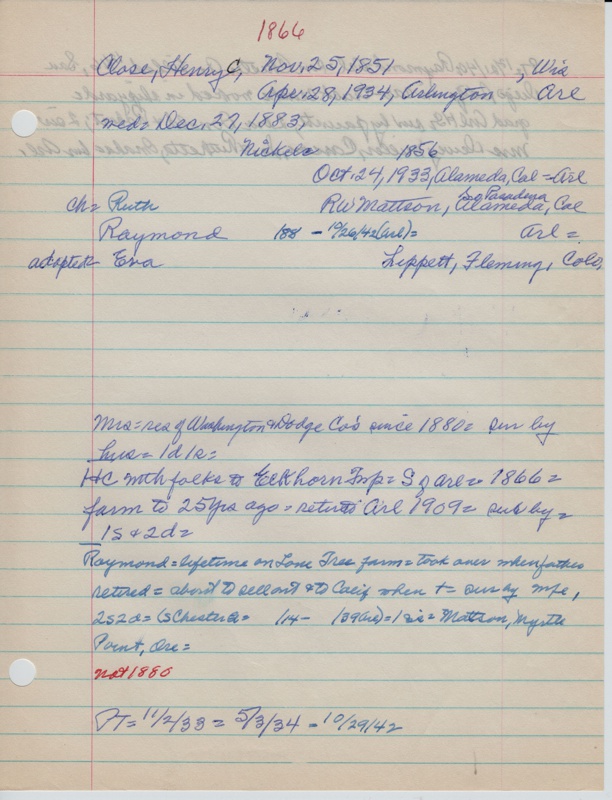 1866
Close, Henry C, Nov. 25, 1851 , Wis
Apr. 28, 1934, Arlington Arl
med= Dec. 27, 1883,
Nickels= 1856
Oct. 24, 1933, Alameda, Cal = Arl
So Pasadena
ch= Ruth RW Mattson, Alameda, Cal
Raymond 188 - 10/26/42 (Arl)= Arl =
adopted= Eva Lippett, Fleming, Colo,
Mrs= res of Washington & Dodge Co's since 1880= sur by
hus= 1d 1s=
HC with folks to Elkhorn Twp= S of Arl= 1866=
farm to 25 yrs ago= retired Arl 1909= sur by=
1s & 2d=
Raymond= lifetime on Lone Tree farm= took over when father
retired= about to sell out & to Calif when += sur by wife,
2s 2d= (S Chester = 114- 139 (Arl)= 1 sis= Mattson, Myrtle
Point, Ore=
not 1880
PT= 11/2/33 = 5/3/34 - 10/29/42